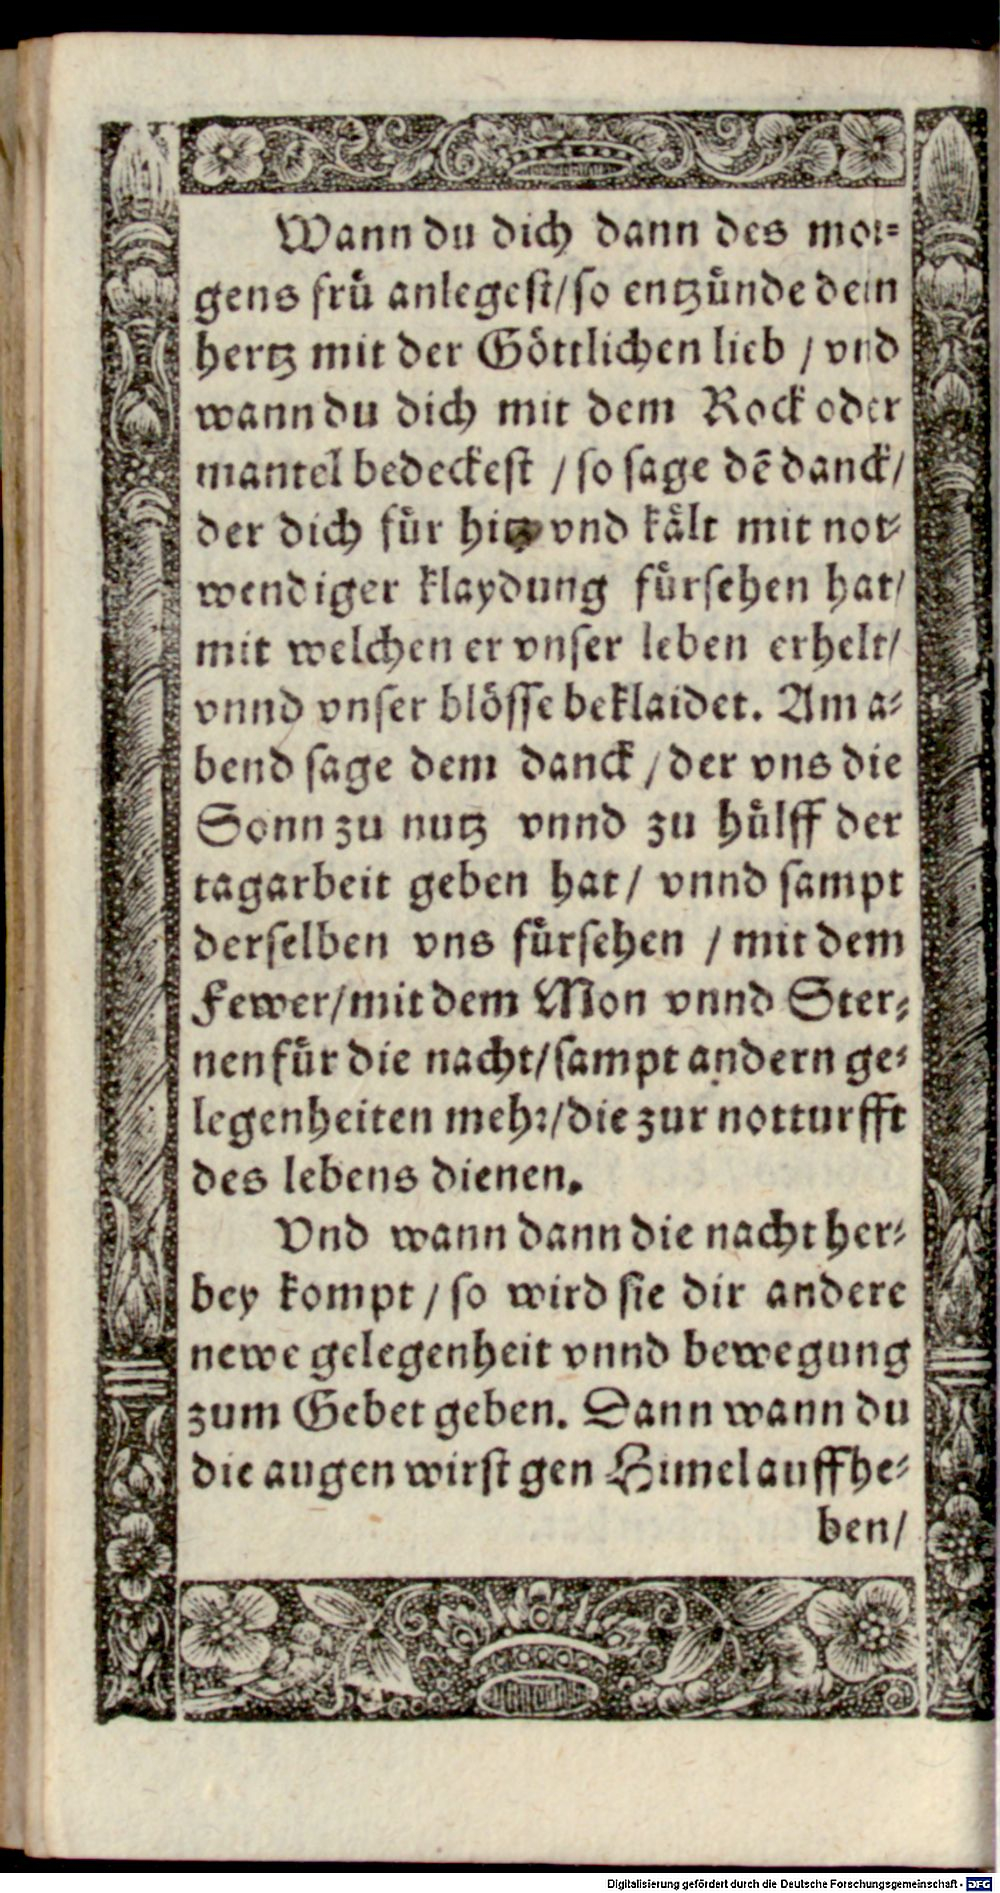 Wann du dich dann des mor⸗
gens frü anlegest/so entzünde dein
hertz mit der Göttlichen lieb / vnd
wann du dich mit dem Rock oder
mantel bedeckest / so sage dē danck/
der dich für hitz vnd kält mit not⸗
wendiger klaydung fürsehen hat/
mit welchen er vnser leben erhelt/
vnnd vnser blösse beklaidet. Am a⸗
bend sage dem danck / der vns die
Sonn zu nutz vnnd zu hülff der
tagarbeit geben hat/ vnnd sampt
derselben vns fürsehen / mit dem
Fewer/mit dem Mon vnnd Ster⸗
nen für die nacht/sampt andern ge⸗
legenheiten mehr/die zur notturfft
des lebens dienen.
Vnd wann dann die nacht her⸗
bey kompt / so wird sie dir andere
newe gelegenheit vnnd bewegung
zum Gebet geben. Dann wann du
die augen wirst gen Himel auffhe⸗
ben/
Digitalisierung gefördert durch die Deutsche Forschungsgemeinschaft - DFG